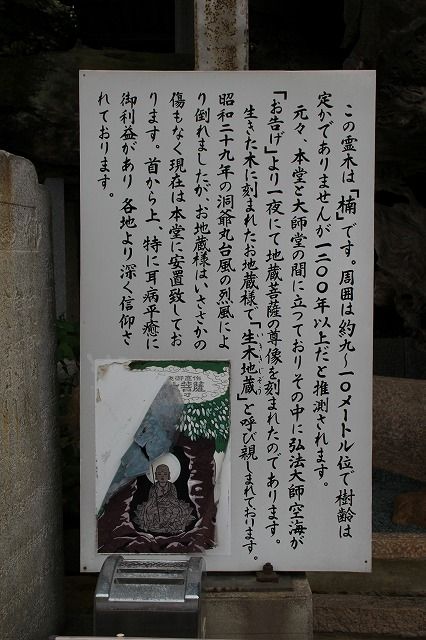 この霊木は「楠」です。周囲は約九〜一〇メートル位で樹齢は
定かでありませんが一二〇〇年以上だと推測されます。
元々、本堂と大師堂の間に立っておりその中に弘法大師空海が
「お告げ」より一夜にて地蔵菩薩の尊像を刻まれたのであります。
生きた木に刻まれたお地蔵様で「生木地蔵」と呼び親しまれております。
いききじぞう
昭和二十九年の洞爺丸台風の烈風によ
り倒れましたが、お地蔵様はいささかの
傷もなく現在は本堂に安置致してお
ります。首から上、特に耳病平癒に
御利益があり各地より深く信仰さ
れております。
菩薩